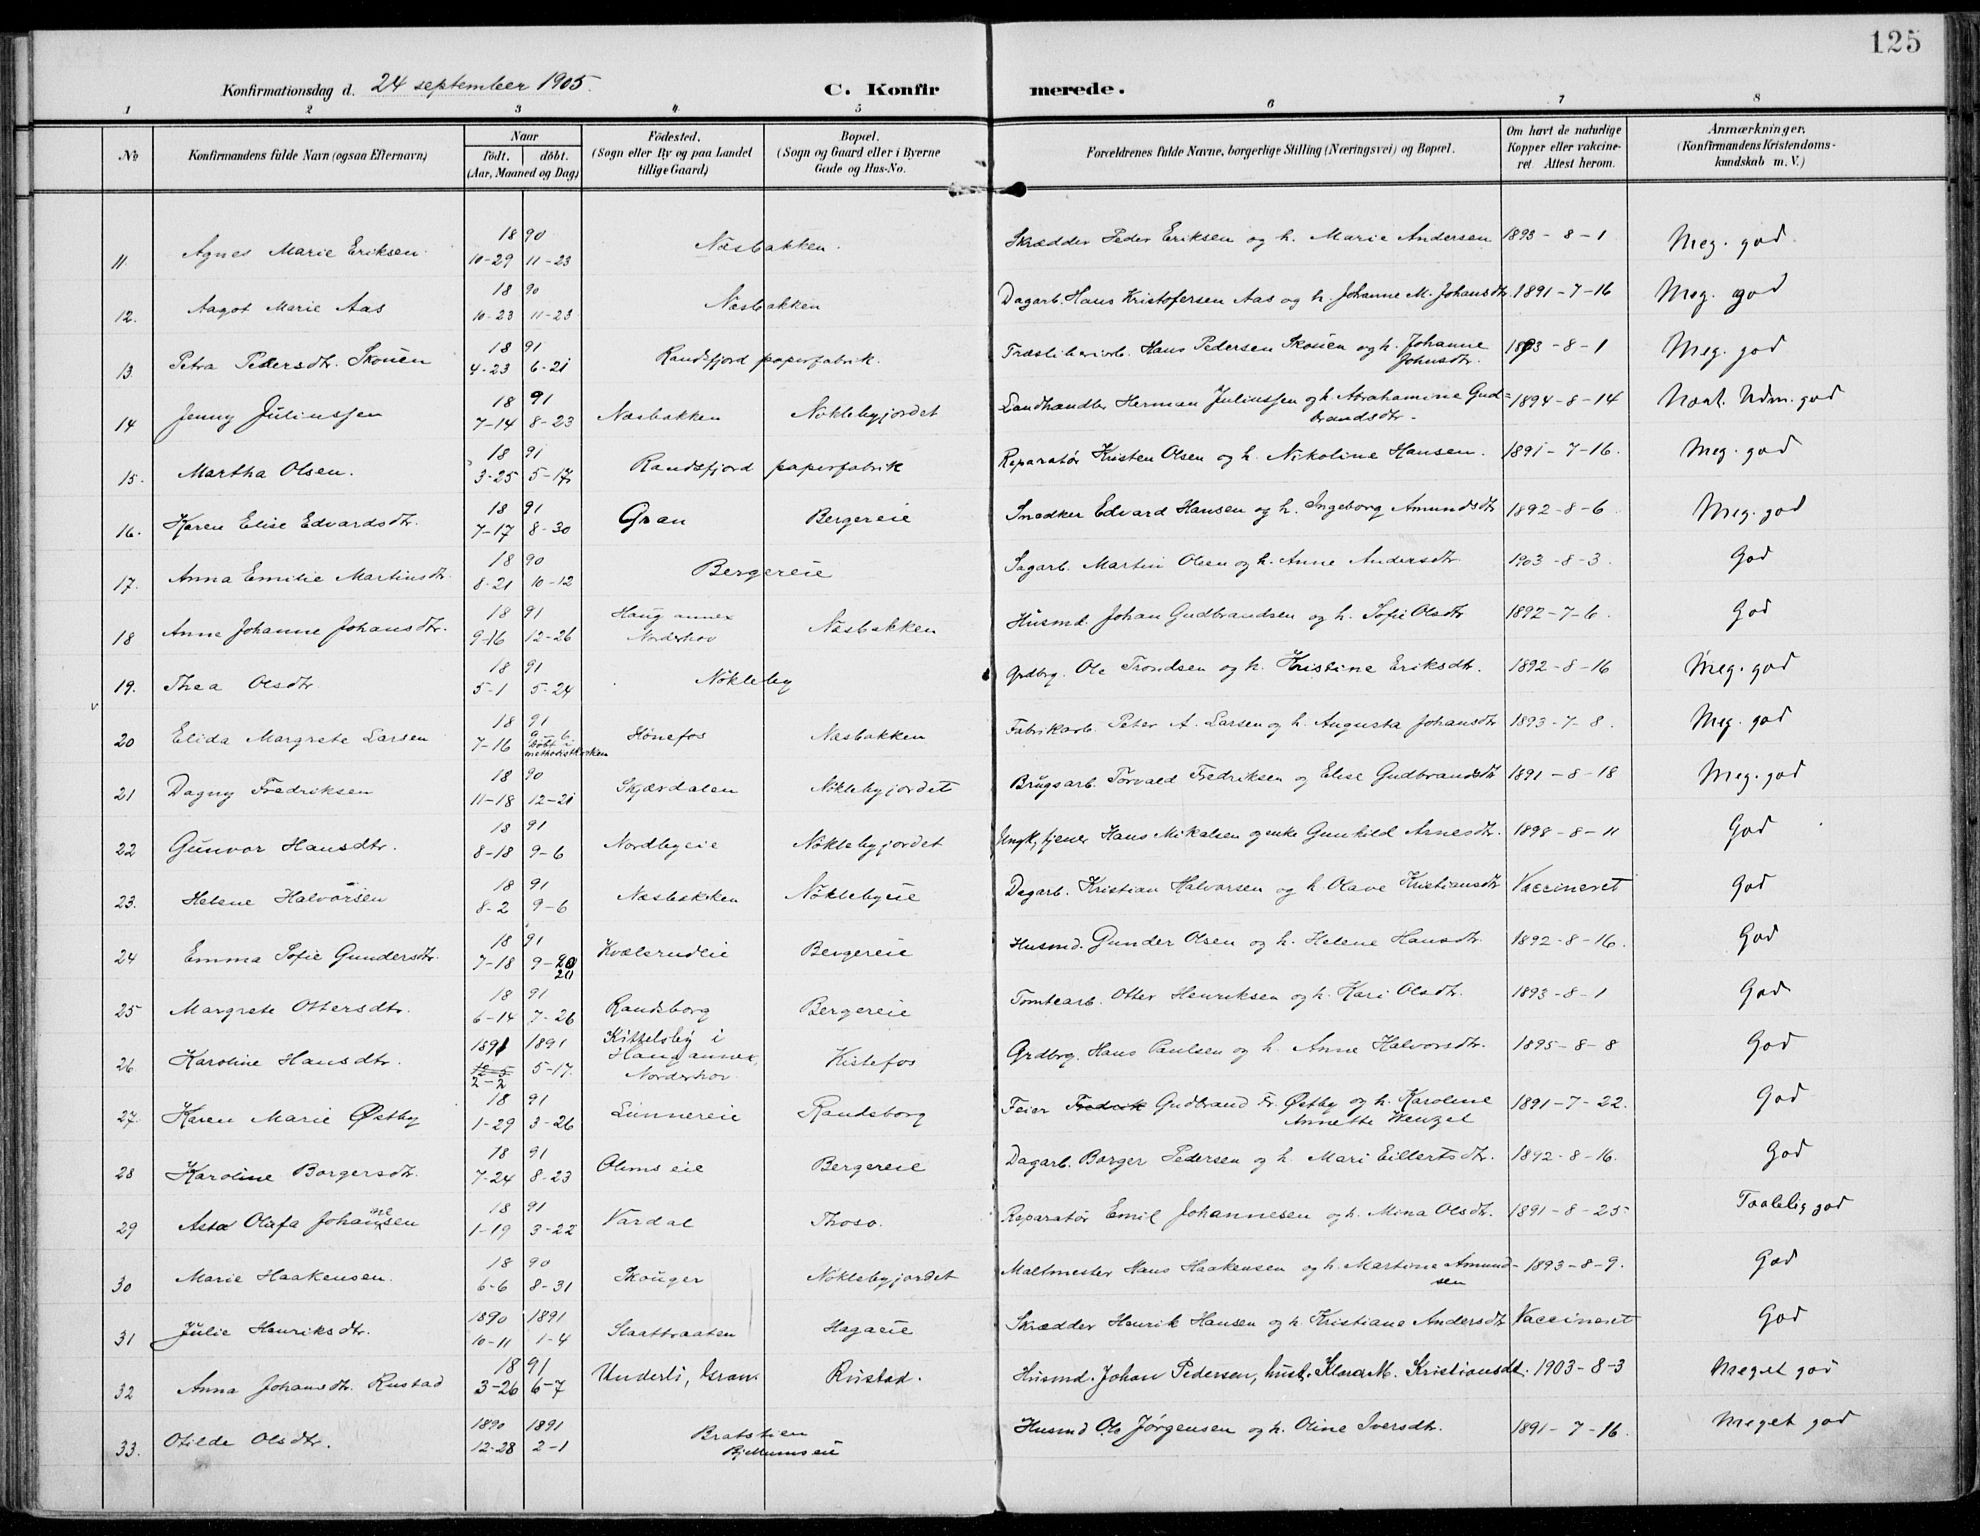 125
Konfirmationsdag d. 24 september 1905.
C. Konfir merede.
1 2 3 4 5 6 7 8
No
Konfirmandens fulde Navn (ogsaa Efternavn)
Naar
født. døbt.
(Aar, Maaned og Dag)
Fødested.
(Sogn eller By og paa Landet
tillige Gaard)
Bopæl.
(Sogn og Gaard eller i Byerne
Gade og Hus-No.
Forældrenes fulde Navne, borgerlige Stilling (Næringsvei) og Bopæl.
Om havt de naturlige
Kopper eller vakcine-
ret. Attest herom.
Anmærkninger.
(Konfirmandens Kristendoms-
kundskab m. V.)
18 90
11 Agnes Marie Eriksen. 10-29 11-23 Næsbakken. Skrædder Peder Eriksen og h. Marie Andersen 1893-8-1 Meg. god
18 90
12. Aagot Marie Aas 10-23 11-23 Næsbakken Dagarb. Hans Kristofersen Aas og h. Johanne M. Johansdtr. 1891-7-16 Meg. god
18 91
13. Petra Pedersdtr. Skouen 4-23 6-21 Randsfjord paperfabrik. Hans Pedersen Skouen og h. Johanne 1893-8-1 Meg. god
Johnsdtr.
18 91
14 Jenny Juliussen 7-14 8-23 Næsbakken Nøklebyjordet Landhandler Herman Juliussen og h. Abrahamine Gud= 1894-8-14 god
brandsdtr.
18 91
15. Martha Olsen. 3-25 5-17 Randsfjord paperfabrik Reparatør Kristen Olsen og h. Nikoline Hansen. 1891-7-16. Meg. god
18 91
16. Karen Elise Edvardsdtr. 7-17 8-30 Gran Bergereie Snedker Edvard Hansen og h. Ingeborg Amundsdtr 1892-8-6 Meg. god
18 90
17. Anna Emilie Martinsdtr. 8-21 10-12 Bergereie Sagarb. Martin Olsen og h. Anne Andersdtr 1903-8-3. God
18 91 Haug annex
18 Anne Johanne Johansdtr. 9-16 12-26 Norderhov Næsbakken Husmd. Johan Gudbrandsen og h. Sofie Olsdtr 1892-7-6. God
18 91
19. Thea Olsdtr 5-1 5-24 Nøkleby Grdbrg. Ole Trondsen og h. Kristine Eriksdtr. 1892-8-16 Meg. god
18 91
20 Elida Margrete Larsen 7-16 9-6 døbt i methodistkirken Hønefos Næsbakken Fabrikarb. Peter A. Larsen og h. Augusta Johansdtr 1893-7-8. Meg. god
18 90
21 Dagny Fredriksen 11-18 12-21 Skjærdalen Nøklebyjordet Brugsarb. Torvald Fredriksen og Elise Gudbrandsdtr 1891-8-18 Meg. god
18 91
22 Gunvor Hansdtr. 8-18 9-6 Nordbyeie Nøklebyjordet Ungk, tjener Hans Mikalsen og enke Gunhild Arnesdtr. 1898-8-11 God
18 91
23. Helene Halvorsen 8-2 9-6 Næsbakken Nøklebyeie Dagarb. Kristian Halvorsen og h. Olave Kristiansdtr Vaccineret God
18 91
24 Emma Sofie Gundersdtr. 7-18 9-20 Kvælsrudeie Bergereie Husmd. Gunder Olsen og h. Helene Hansdtr. 1892-8-16. God
20
18 91
25 Margrete Ottersdtr. 6-14 7-26 Randsborg Bergereie Tomtearb. Otter Henriksen og h. Kari Olsdtr. 1893-8-1 God
1891 1891 Kittelsby i
26. Karoline Hansdtr. 2-2 5-17. Haug annex, Norderhov Kistefos Grdbrg. Hans Paulsen og h. Anne Halvorsdtr. 1895-8-8 God
18 91
27. Karen Marie Østby 1-29 3-26 Lunnereie Randsborg Feier Fredrik Gudbrand Fr. Østby og h. Karoline 1891-7-22. God
Annette Wenzel
18 91
28 Karoline Borgersdtr. 7-24 8-23 Olimseie Bergereie Dagarb. Borger Pedersen og h. Mari Eilertsdtr. 1892-8-16. God
18 91
29 Asta Olafa Johannesen 1-19 3-22 Vardal Thoso. Reparatør Emil Johannesen og h. Mina Olsdtr. 1891-8-25 Taalelig god
18 90
30 Marie Haakensen. 6-6 8-31 Skouger Nøklebyjordet Maltmester Hans Haakensen og h. Martine Amund- 1893-8-9. God
sen
1890 1891
31 Julie Henriksdtr. 10-11 1-4 Slaattraaten Hagaeie Skrædder Henrik Hansen og h. Kristiane Andersdtr Vaccineret God
18 91
32 Anna Johansdtr. Rustad 3-26 6-7 Underli, Gran. Rustad. Husmd. Johan Pedersen, hust. Klara M. Kristiansdt. 1903-8-3 Meget god
1890 1891
33. Otilde Olsdtr. 12-28 2-1 Bratstien Husmd Ole Jørgensen og h. Oline Iversdtr. 1891-7-16. Meget god
Bjellumseie